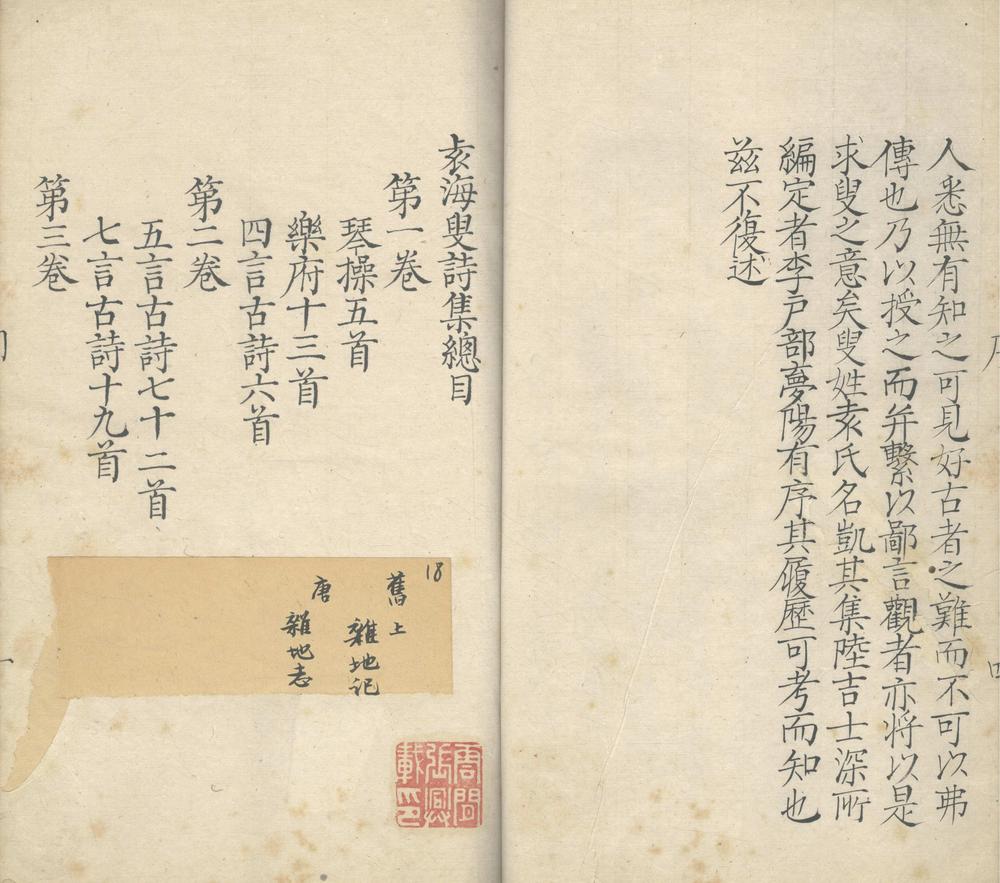 人悉無有知之可見好古者之難而不可以弗
傳也乃以授之而并繫以鄙言觀者亦将以是
求叟之意矣叟姓袁氏名凱其集陸吉士深所
編定者李户部夢陽有序其履歷可考而知也
兹不復述
袁海叟詩集總目
第一卷
琴操五首
樂府十三首
四言古詩六首
第二卷
五言古詩七十二首
七言古詩十九首
第三卷
18
舊上
雜地記
唐
雜地志